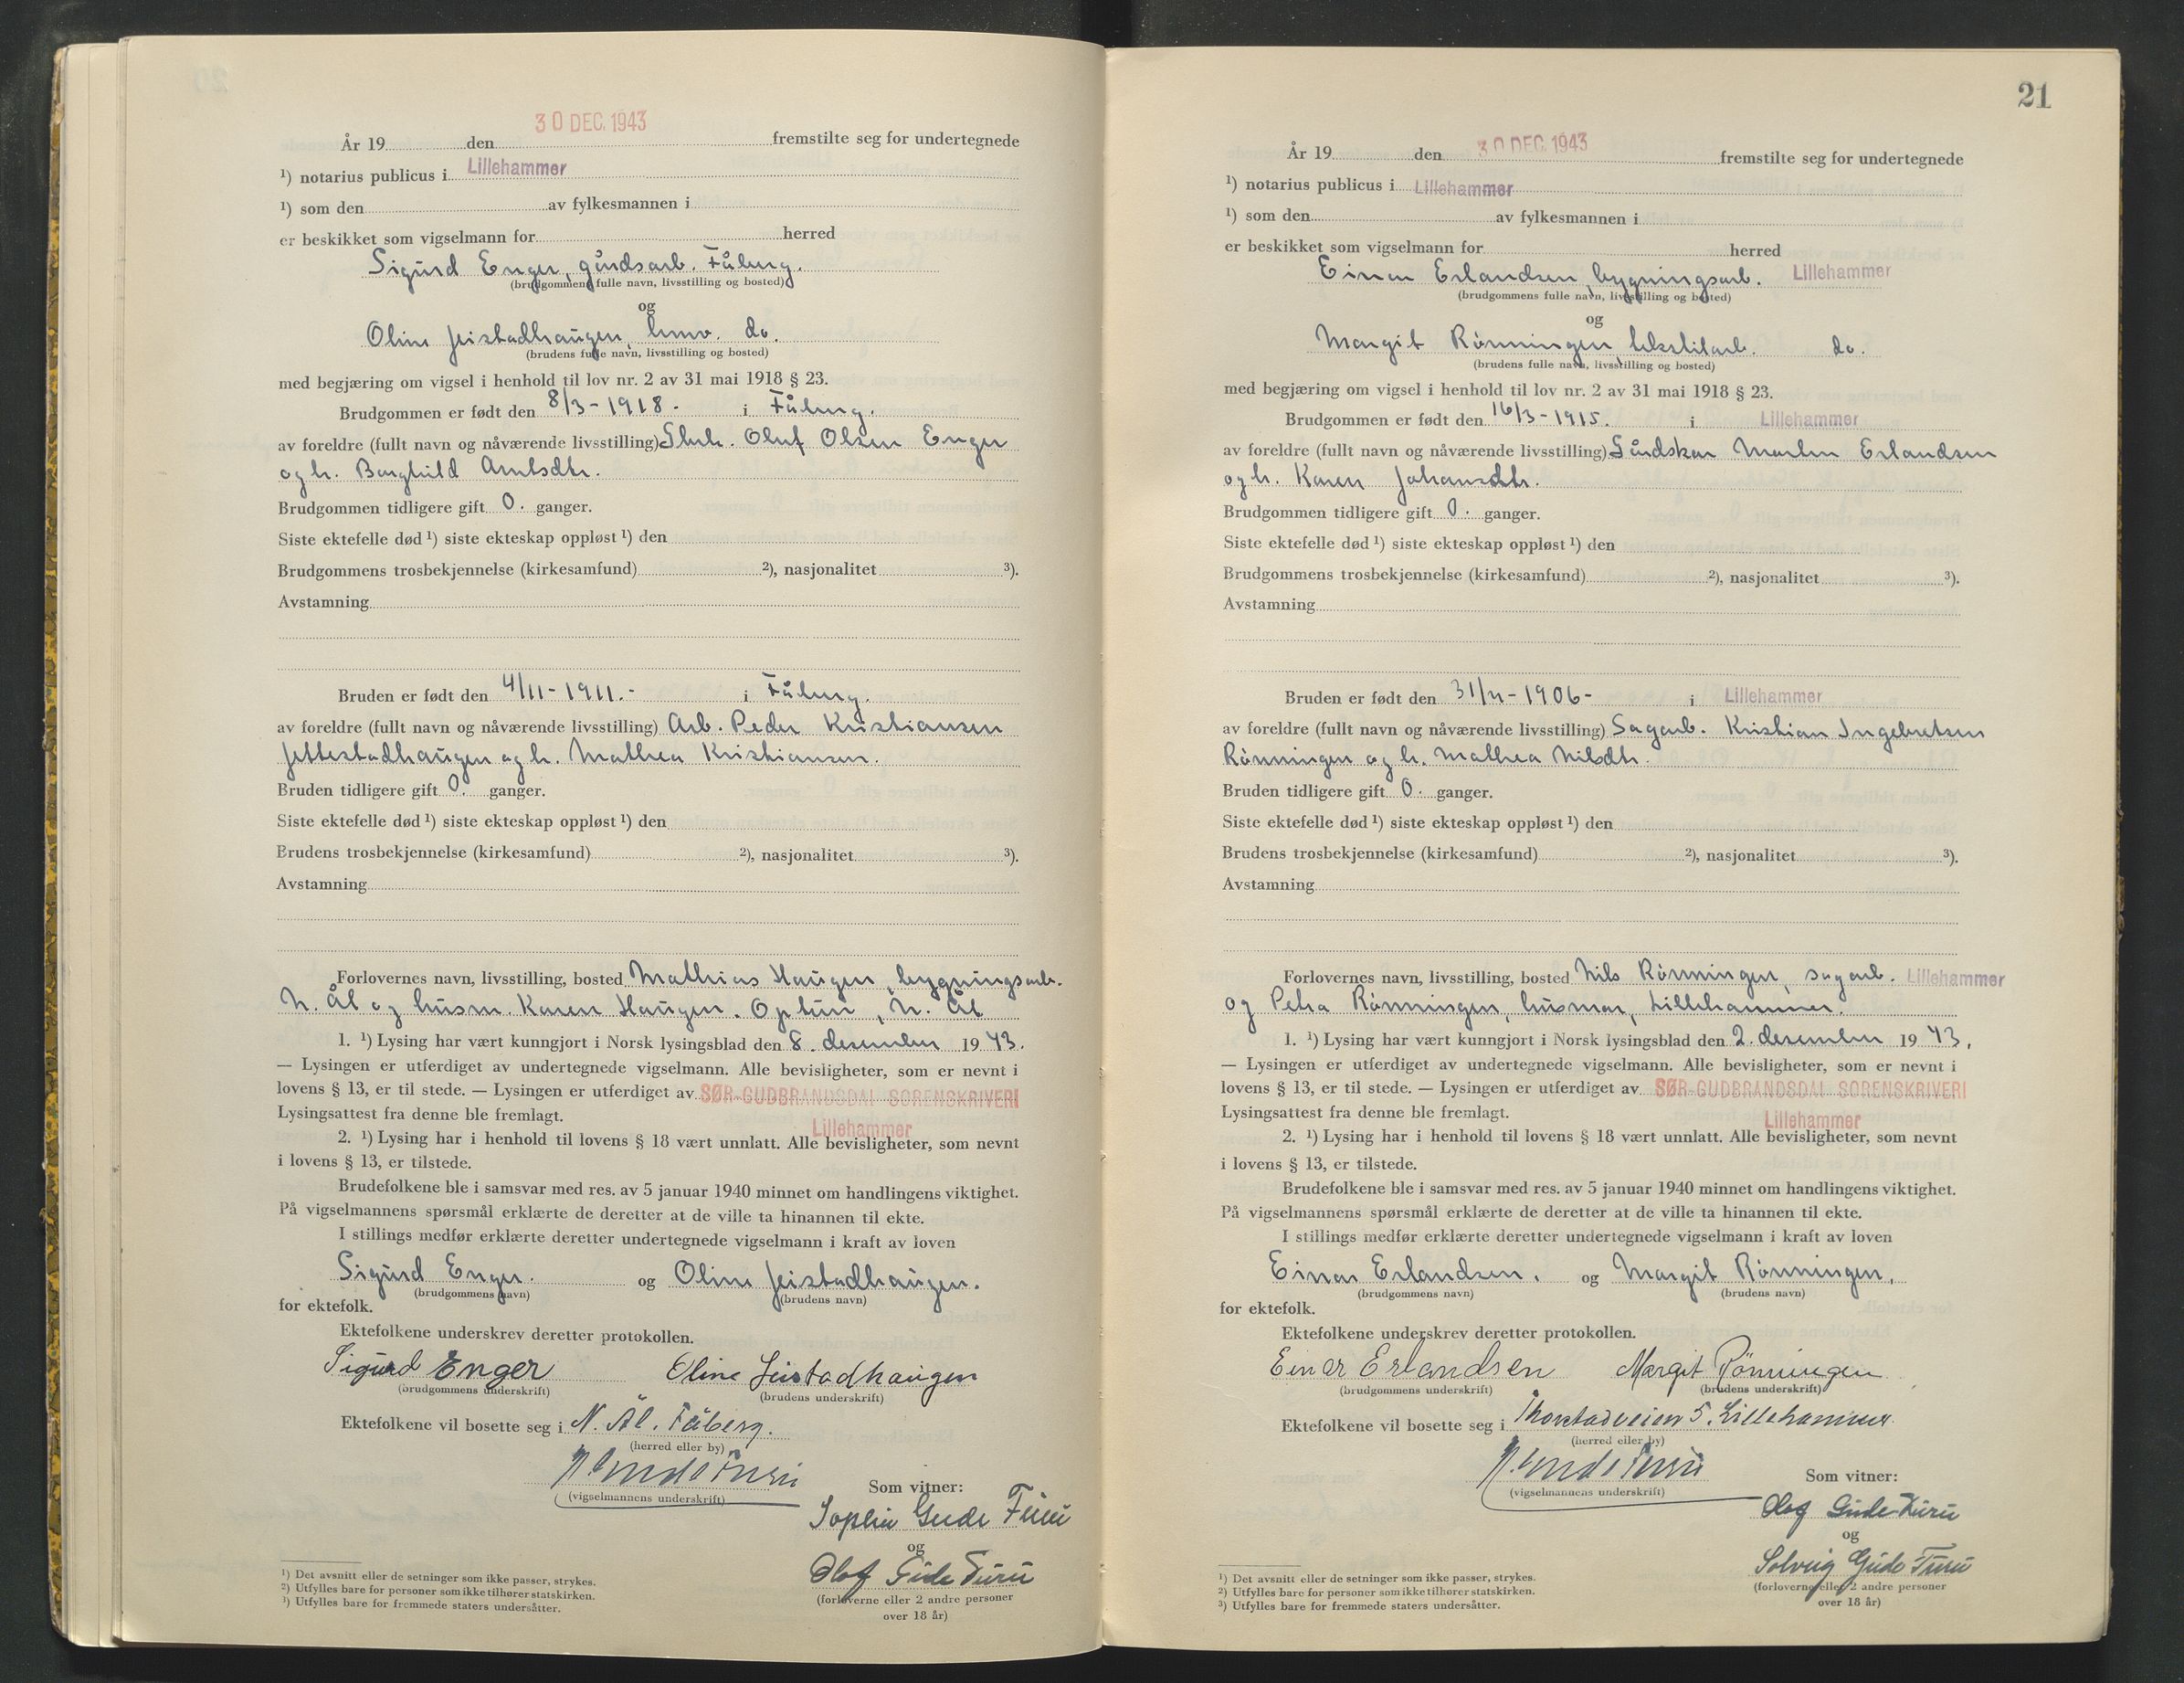 30 DEC. 1943
År 19 den fremstilte seg for undertegnede
¹) notarius publicus i Lillehammer
¹) som den av fylkesmannen i
er beskikket som vigselmann for herred
Sigurd Enger, gårdsarb. Fåberg.
(brudgommens fulle navn, livsstilling og bosted)
og
Oline Jeistadhaugen, hmv. do.
(brudens fulle navn, livsstilling og bosted)
med begjæring om vigsel i henhold til lov nr. 2 av 31 mai 1918 § 23.
Brudgommen er født den 8/3-1918. i Fåberg.
av foreldre (fullt navn og nåværende livsstilling) Oluf Olsen Enger
og h. Borghild Arntsdtr.
Brudgommen tidligere gift 0. ganger.
Siste ektefelle død ¹) siste ekteskap oppløst ¹) den
Brudgommens trosbekjennelse (kirkesamfund) ²), nasjonalitet ³).
Avstamning
Bruden er født den 4/11-1911.- i Fåberg.
av foreldre (fullt navn og nåværende livsstilling) Arb. Peder Kristiansen
Jettestadhaugen og h. Mathea Kristiansen.
Bruden tidligere gift 0. ganger.
Siste ektefelle død ¹) siste ekteskap oppløst ¹) den
Brudens trosbekjennelse (kirkesamfund) ²), nasjonalitet ³).
Avstamning
Forlovernes navn, livsstilling, bosted Mathias Haugen, bygningsarb.
N. Ål og husm. Karen Haugen. Optun, N. Ål
1. ¹) Lysing har vært kunngjort i Norsk lysingsblad den 8. desember 1943.
— Lysingen er utferdiget av undertegnede vigselmann. Alle bevisligheter, som er nevnt i
lovens § 13, er til stede. — Lysingen er utferdiget av SØR-GUDBRANDSDAL SORENSKRIVERI
Lysingsattest fra denne ble fremlagt.
Lillehammer
2. ¹) Lysing har i henhold til lovens § 18 vært unnlatt. Alle bevisligheter, som nevnt
i lovens § 13, er tilstede.
Brudefolkene ble i samsvar med res. av 5 januar 1940 minnet om handlingens viktighet.
På vigselmannens spørsmål erklærte de deretter at de ville ta hinannen til ekte.
I stillings medfør erklærte deretter undertegnede vigselmann i kraft av loven
Sigurd Enger. og Oline Jeistadhaugen.
(brudgommens navn) (brudens navn)
for ektefolk.
Ektefolkene underskrev deretter protokollen.
Sigurd Enger Oline Jeistadhaugen
(brudgommens underskrift) (brudens underskrift)
Ektefolkene vil bosette seg i N. Ål. Fåberg.
(herred eller by)
(vigselmannens underskrift)
Som vitner:
Sophie Gude Furu
og
Olof Gude Furu
(forloverne eller 2 andre personer
over 18 år)
¹) Det avsnitt eller de setninger som ikke passer, strykes.
²) Utfylles bare for personer som ikke tilhører statskirken.
³) Utfylles bare for fremmede staters undersåtter.
21
30 DEC. 1943
År 19 den fremstilte seg for undertegnede
¹) notarius publicus i Lillehammer
¹) som den av fylkesmannen i
er beskikket som vigselmann for herred
Einar Erlandsen, bygningsarb. Lillehammer
(brudgommens fulle navn, livsstilling og bosted)
og
Margit Rönningen, tekstilarb. do.
(brudens fulle navn, livsstilling og bosted)
med begjæring om vigsel i henhold til lov nr. 2 av 31 mai 1918 § 23.
Brudgommen er født den 16/3-1915. i Lillehammer
av foreldre (fullt navn og nåværende livsstilling) Gårdskar Martin Erlandsen
og h. Karen Johansdtr.
Brudgommen tidligere gift 0. ganger.
Siste ektefelle død ¹) siste ekteskap oppløst ¹) den
Brudgommens trosbekjennelse (kirkesamfund) ²), nasjonalitet ³).
Avstamning
Bruden er født den -1906- i Lillehammer
av foreldre (fullt navn og nåværende livsstilling) Sagarb. Kristian Ingebretsen
Rönningen og h. Mathea Nilsdtr.
Bruden tidligere gift 0. ganger.
Siste ektefelle død ¹) siste ekteskap oppløst ¹) den
Brudens trosbekjennelse (kirkesamfund) ²), nasjonalitet ³).
Avstamning
Forlovernes navn, livsstilling, bosted Nils Rönningen, sagarb. Lillehammer
og Petra Rönningen, husmor, Lillehammer.
1. ¹) Lysing har vært kunngjort i Norsk lysingsblad den 2. desember 1943.
— Lysingen er utferdiget av undertegnede vigselmann. Alle bevisligheter, som er nevnt i
lovens § 13, er til stede. — Lysingen er utferdiget av SØR-GUDBRANDSDAL SORENSKRIVERI
Lysingsattest fra denne ble fremlagt.
Lillehammer
2. ¹) Lysing har i henhold til lovens § 18 vært unnlatt. Alle bevisligheter, som nevnt
i lovens § 13, er tilstede.
Brudefolkene ble i samsvar med res. av 5 januar 1940 minnet om handlingens viktighet.
På vigselmannens spørsmål erklærte de deretter at de ville ta hinannen til ekte.
I stillings medfør erklærte deretter undertegnede vigselmann i kraft av loven
Einar Erlandsen. og Margit Rönningen.
(brudgommens navn) (brudens navn)
for ektefolk.
Ektefolkene underskrev deretter protokollen.
Einar Erlandsen Margit Rönningen
(brudgommens underskrift) (brudens underskrift)
Ektefolkene vil bosette seg i Thorstadveien 5. Lillehammer
(herred eller by)
(vigselmannens underskrift)
Som vitner:
Olof Gude Furu
og
Solveig Gude Furu
(forloverne eller 2 andre personer
over 18 år)
¹) Det avsnitt eller de setninger som ikke passer, strykes.
²) Utfylles bare for personer som ikke tilhører statskirken.
³) Utfylles bare for fremmede staters undersåtter.